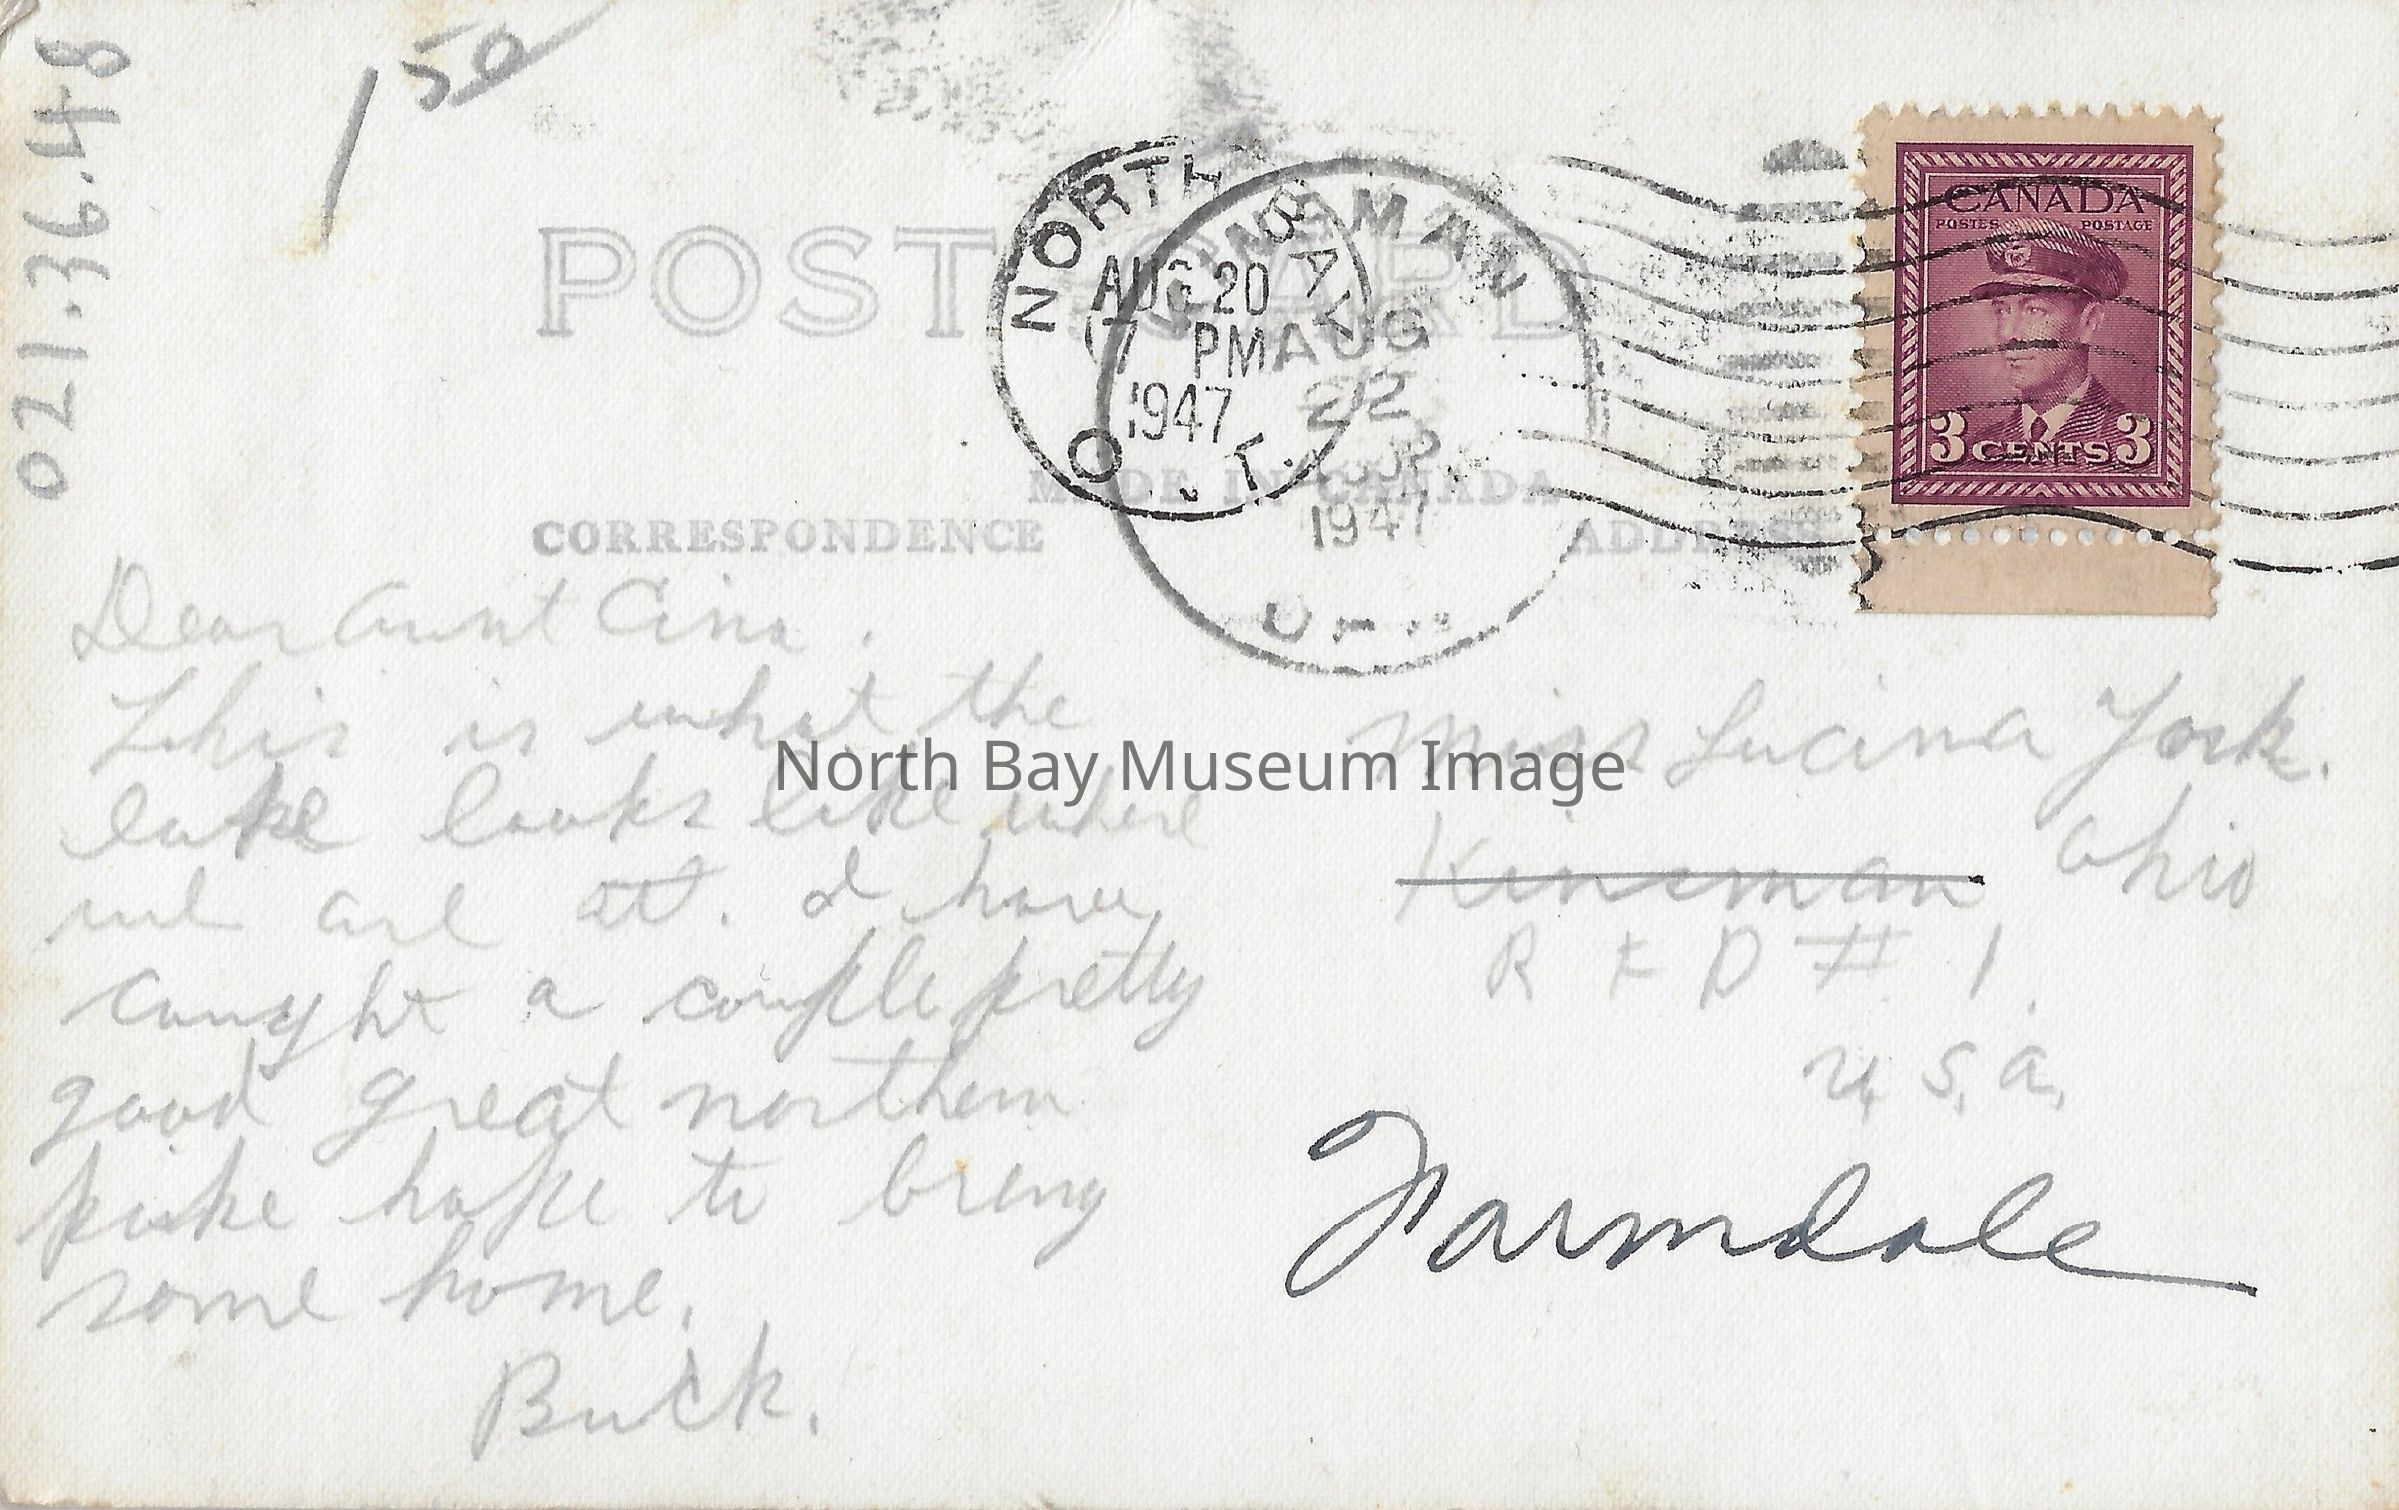 021.36.48
1 50
POST CARD
NORTH BAY
AUG 20
PM
1947
O T.
KINSMAN
AUG
22
1947
CANADA
POSTES POSTAGE
3 CENTS 3
MADE IN CANADA
CORRESPONDENCE
ADDRESS
Dear Aunt Cina.
This is what the
lake looks like where
we are at. I have
caught a couple pretty
good great northern
pike hope to bring
some home.
Buck.
North Bay Museum Image
Miss Lucina York.
Kinsman Ohio
R F D # 1.
U.S.A.
Farmdale